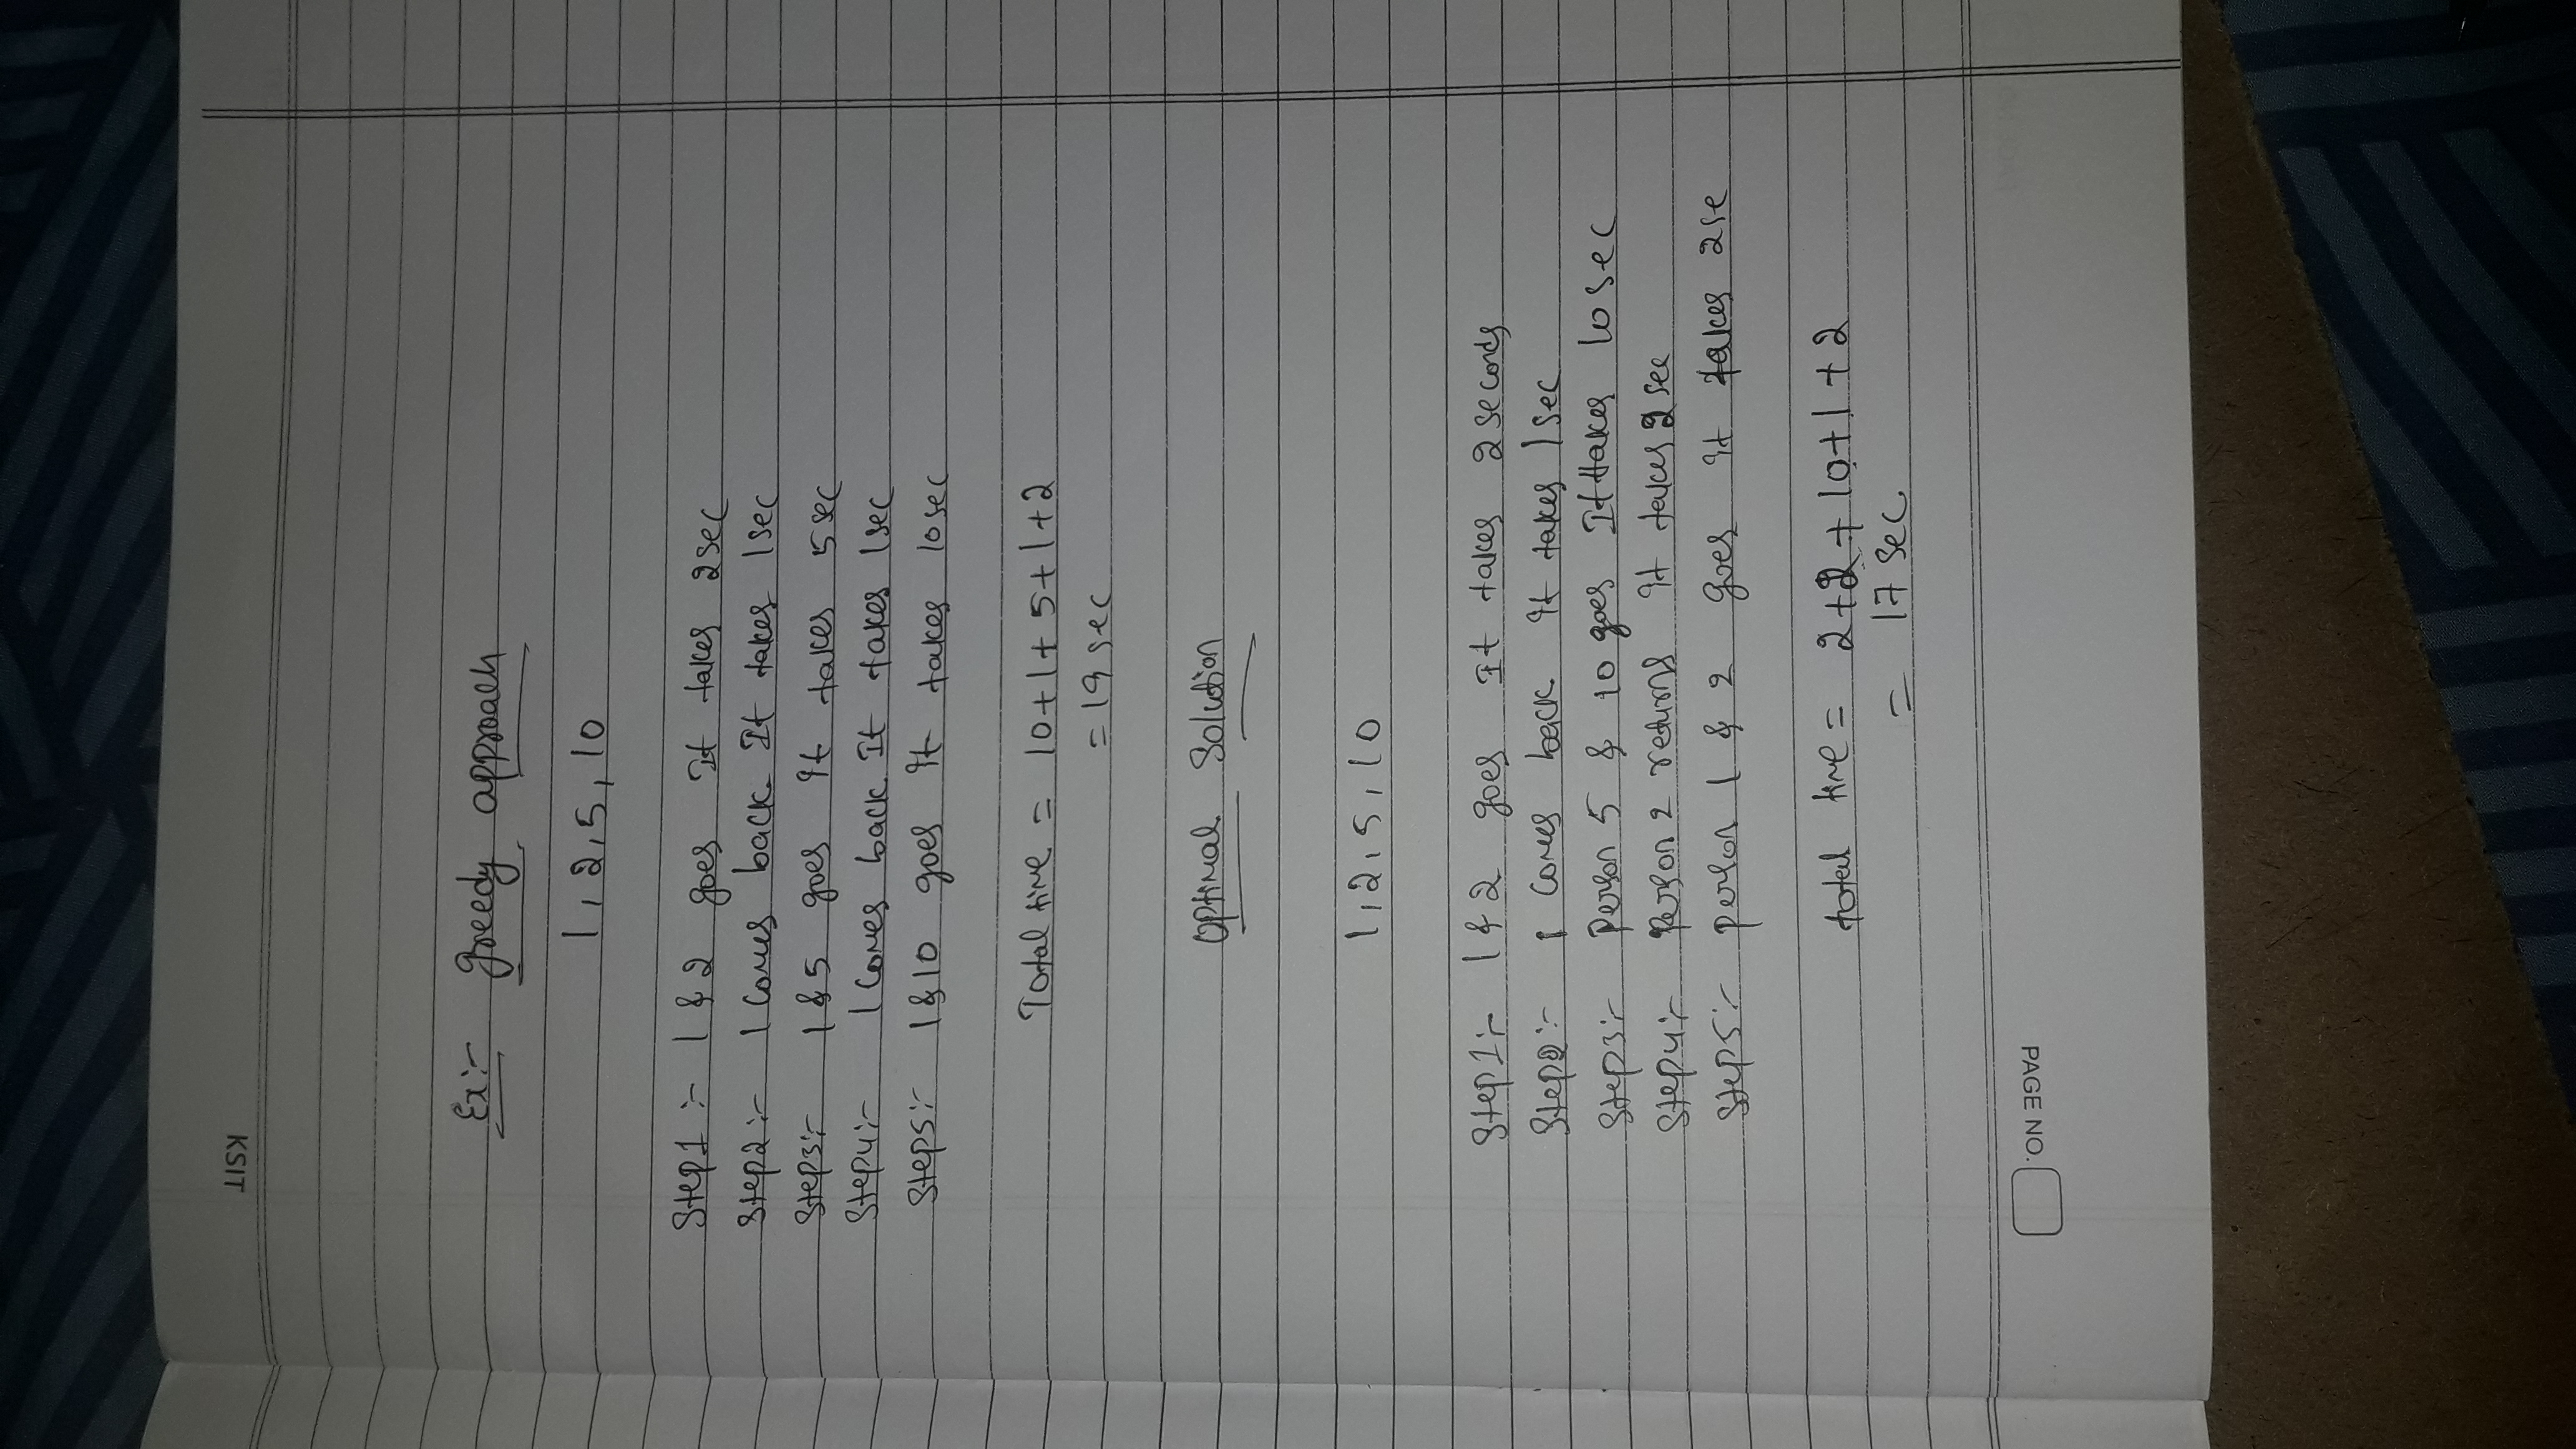 KSIT
Ex:- Greedy approach
1, 2, 5, 10
Step1 :- 1 & 2 goes It takes 2sec
Step2 :- 1 Comes back It takes 1sec
Step3:- 1 & 5 goes It takes 5sec
Step4:- 1 Comes back It takes 1sec
Step5:- 1 & 10 goes It takes 10sec
Total time = 10+1+5+1+2
= 19 sec
Optimal Solution
1, 2, 5, 10
Step1:- 1 & 2 goes It takes 2 seconds
Step2:- 1 Comes back It takes 1 Sec
Step3:- Person 5 & 10 goes It takes 10 sec
Step4:- Person 2 returns It takes 2 sec
Step5:- person 1 & 2 goes It takes 2se
total time = 2+2+10+1+2
= 17 Sec
PAGE NO.